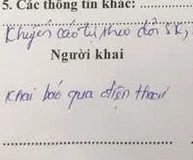 5. Các thông tin khác:
Khuyến cáo tự theo dõi SK,
Người khai
Khai báo qua điện thoại